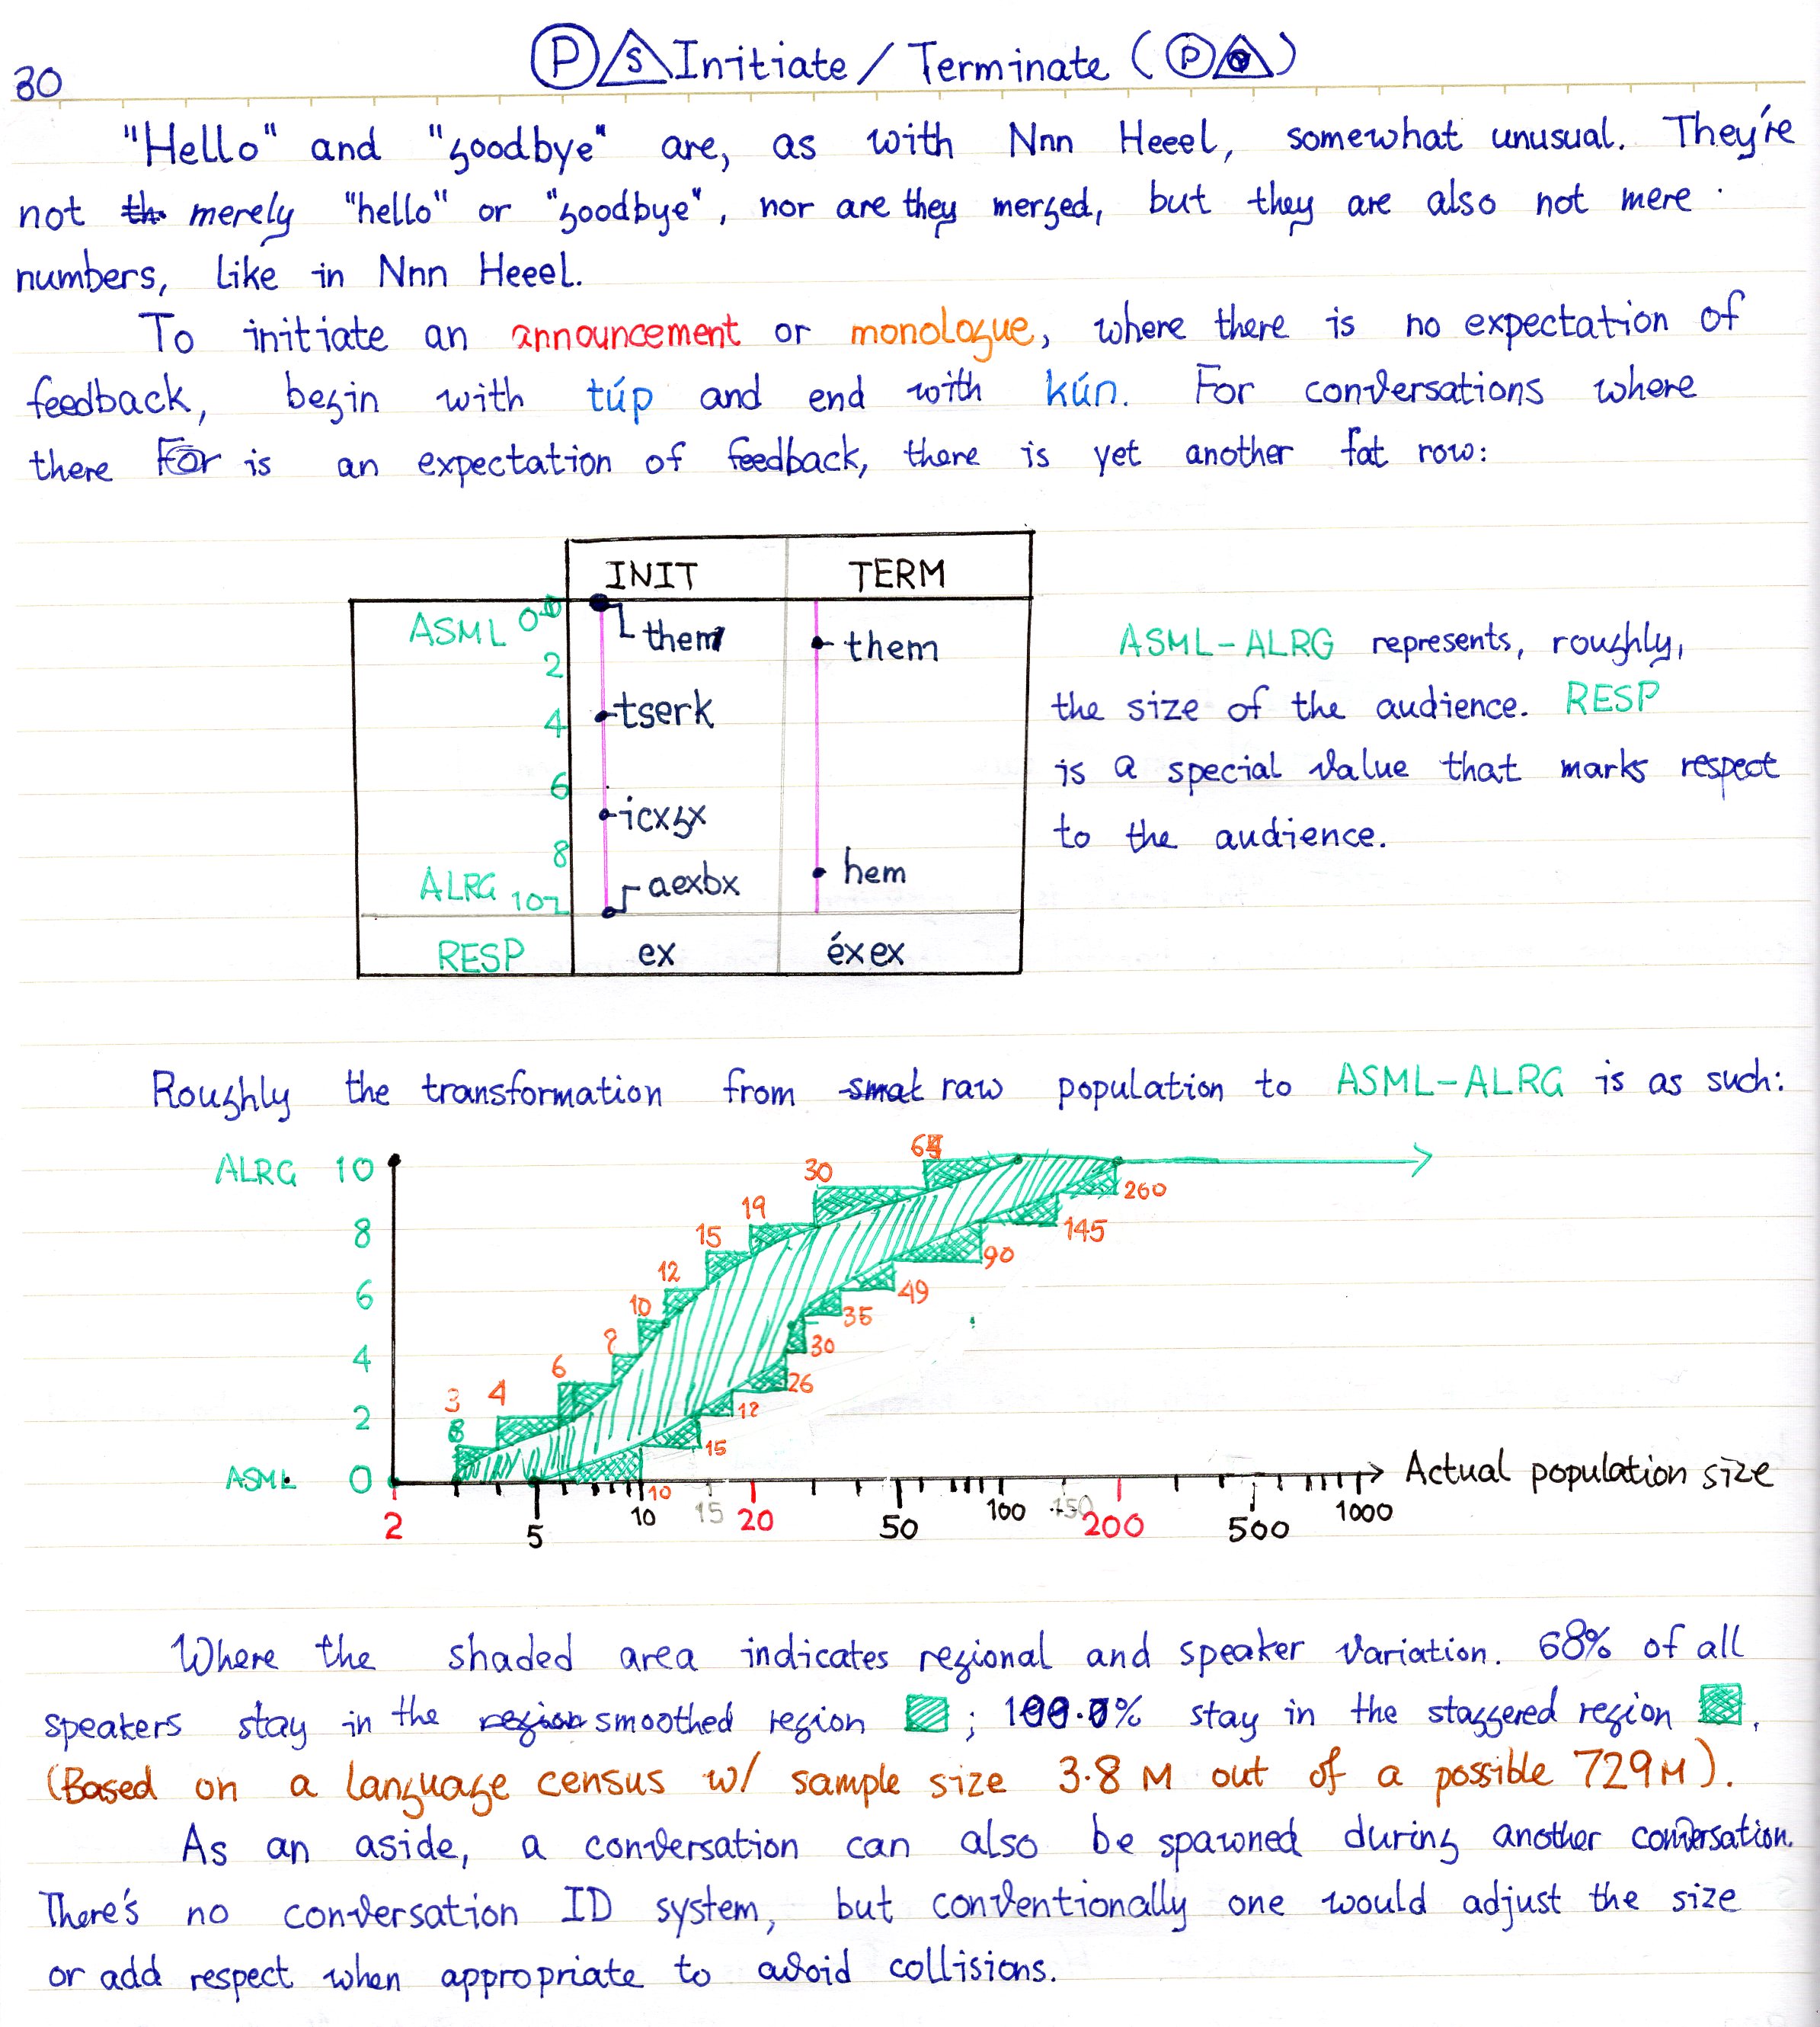 30
P S Initiate / Terminate ( P )
"Hello" and "goodbye" are, as with Nnn Heeel, somewhat unusual. They're
not th merely "hello" or "goodbye", nor are they merged, but they are also not mere
numbers, like in Nnn Heeel.
To initiate an announcement or monologue, where there is no expectation of
feedback, begin with túp and end with kún. For conversations where
there For is an expectation of feedback, there is yet another fat row:
INIT TERM
ASML 0
them
them
2
4
tserk
6
icxgx
8
hem
ALRG 10
aexbx
RESP ex éxex
ASML-ALRG represents, roughly,
the size of the audience. RESP
is a special value that marks respect
to the audience.
Roughly the transformation from smal raw population to ASML-ALRG is as such:
ALRG 10
8
6
4
2
ASML 0
3
4
6
10
12
15
19
30
260
145
90
49
35
30
26
15
10
2
5
10
15
20
50
100
150
200
500
1000
Actual population size
Where the shaded area indicates regional and speaker variation. 68% of all
speakers stay in the region smoothed region ; % stay in the staggered region .
(Based on a language census w/ sample size 3.8 M out of a possible 729M).
As an aside, a conversation can also be spawned during another conversation.
There's no conversation ID system, but conventionally one would adjust the size
or add respect when appropriate to avoid collisions.